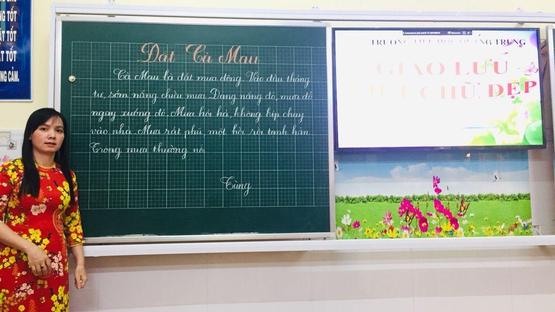 TỐT
TỐT
CẢM.
Đất Cà Mau
Cà Mau là đất mưa dông. Vào đầu tháng
tư, sớm nắng chiều mưa. Đang nắng đó, mưa đổ
ngay xuống đó. Mưa hối hả, không kịp chạy
vào nhà. Mưa rất phũ, một hồi rồi tạnh hẳn.
Trong mưa thường nổi
Tùng
TRƯỜNG TIỂU HỌC QUANG TRUNG
GIAO LƯU
CHỮ ĐẸP